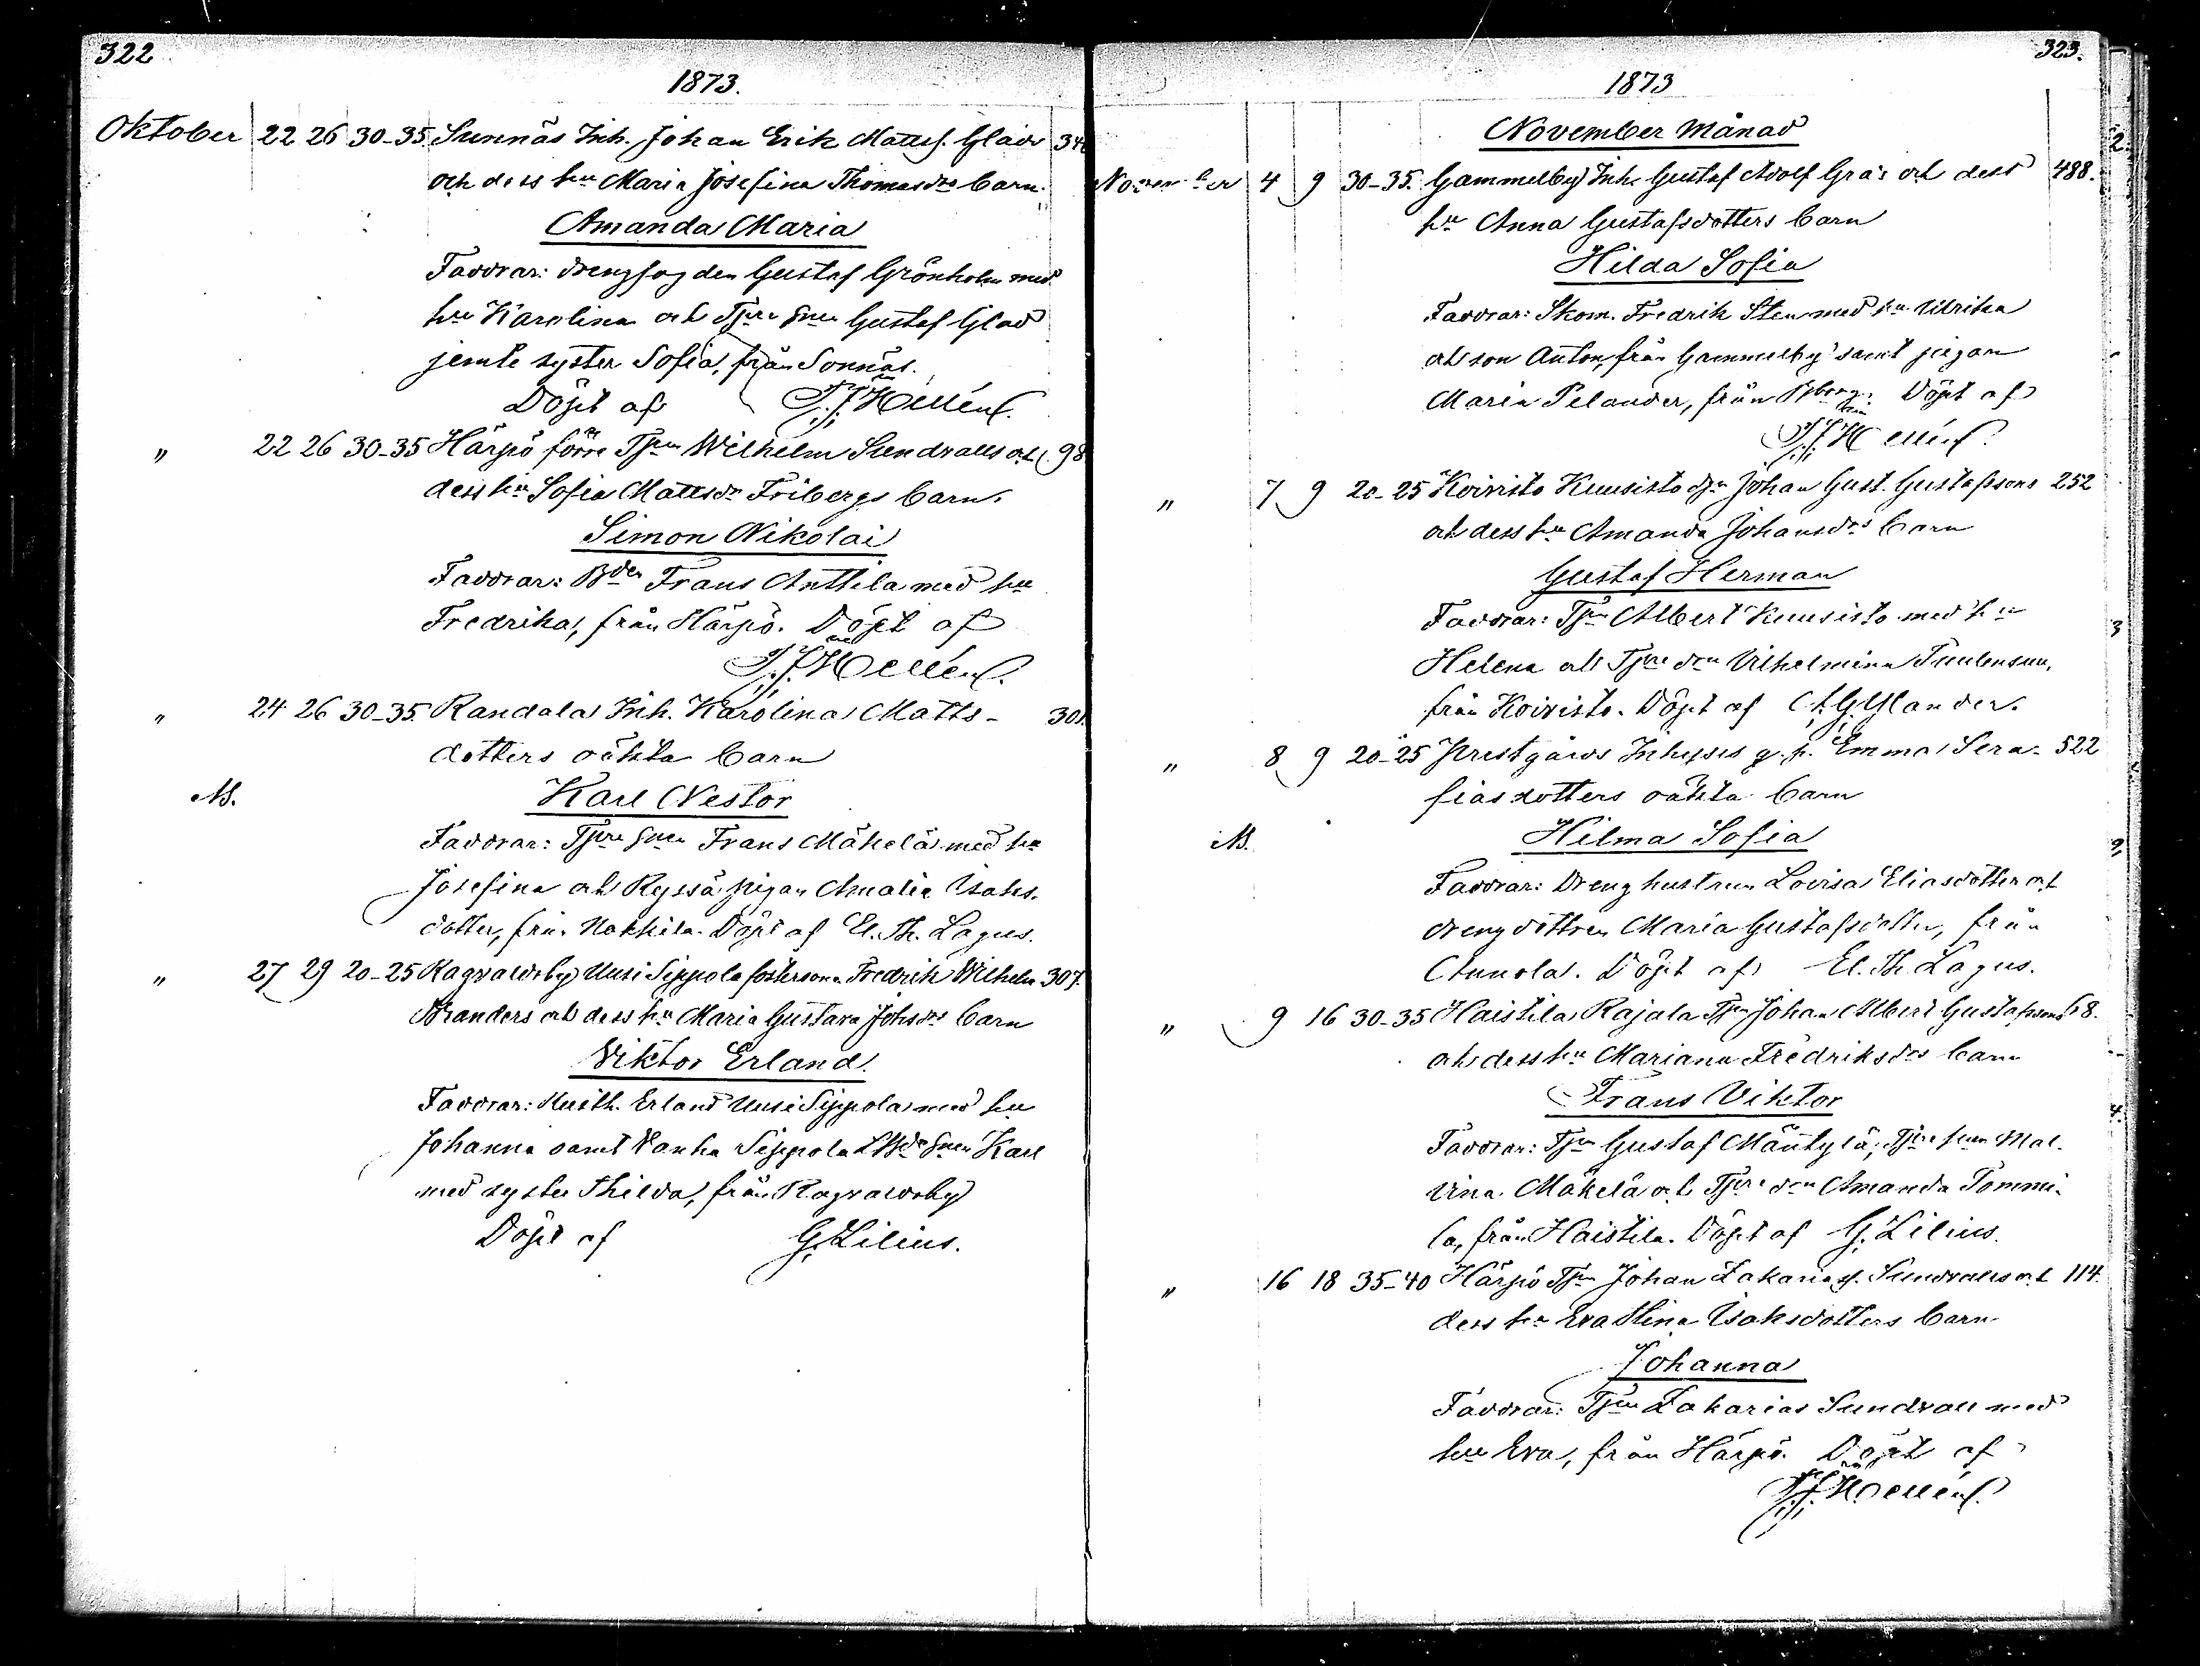 322
1873.
Oktober 22 26 30-35 Sunnäs Inh. Johan Erik Mattss. Glads 34
och dess hu Maria Josefina Thomasdrs barn
Amanda Maria
Faddrar: drengfogden Gustaf Grönholm med
hu Karolina och Gustaf Glad
jemte syster Sofia, från Sonnäs.
Döpt af Hellén
" 22 26 30-35 Härpö förre Tjen Wilhelm Sundvalls och 98
dess hu Sofia Mattsdr Fribergs barn.
Simon Nikolai
Faddrar: Bden Frans Anttila med hu
Fredrika, från Härpö. Döpt af
Hellén
" 24 26 30-35 Randala Inh. Karolina Matts- 301
dotters oäkta barn
Karl Nestor
Faddrar: Frans Mäkelä med hu
Josefina och Ryssä pigan Amalia Isaks-
dotter, från Nakkila. Döpt af El. Th. Lagus.
" 27 29 20-25 Ragvaldsby Uusi Sippola fostersons Fredrik Wilhelm 307.
Branders och dess hu Maria Gustava Johsdrs barn
Viktor Erland
Faddrar: Erland Uusi Sippola med hu
Johanna samt Vanha Sippola Karl
med syster Thilda, från Ragvaldsby
Döpt af G. Lilius.
323.
1873
November Månad
November 4 9 30-35. Gammelby Inh. Gustaf Adolf Grås och dess 488.
hu Anna Gustafsdotters barn
Hilda Sofia
Faddrar: Skom. Fredrik Sten med hu Ulrika
och son Anton, från Gammelby samt pigan
Maria Pelander, från Döpt af
Hellén
" 7 9 20-25 Koivisto Kuusisto Johan Gust. Gustafssons 252
och dess hu Amanda Johansdrs barn
Gustaf Herman
Faddrar: Tjen Albert Kuusisto med hu
Helena och Vilhelmina
från Koivisto. Döpt af
" 8 9 20-25 Prestgårds Inhyses g. p. Emma Sera- 522
fiasdotters oäkta barn
Hilma Sofia
Faddrar: Dreng hustrun Lovisa Eliasdotter och
drengdottren Maria Gustafsdotter, från
Annola. Döpt af El. Th. Lagus.
" 9 16 30-35 Haistila Rajala Tjen Johan Albert Gustafssons 68.
och dess hu Mariana Fredriksdrs barn
Frans Viktor
Faddrar: Tjen Gustaf Mäntylä, Mal-
vina Mäkelä och Amanda Tommi-
la, från Haistila. Döpt af G. Lilius.
" 16 18 35-40 Härpö Tjen Johan Zakariass. Sundvalls och 114.
dess hu Eva Stina Isaksdotters barn
Johanna
Faddrar: Tjen Zakarias Sundvall med
hu Eva, från Härpö. Döpt af
Hellén